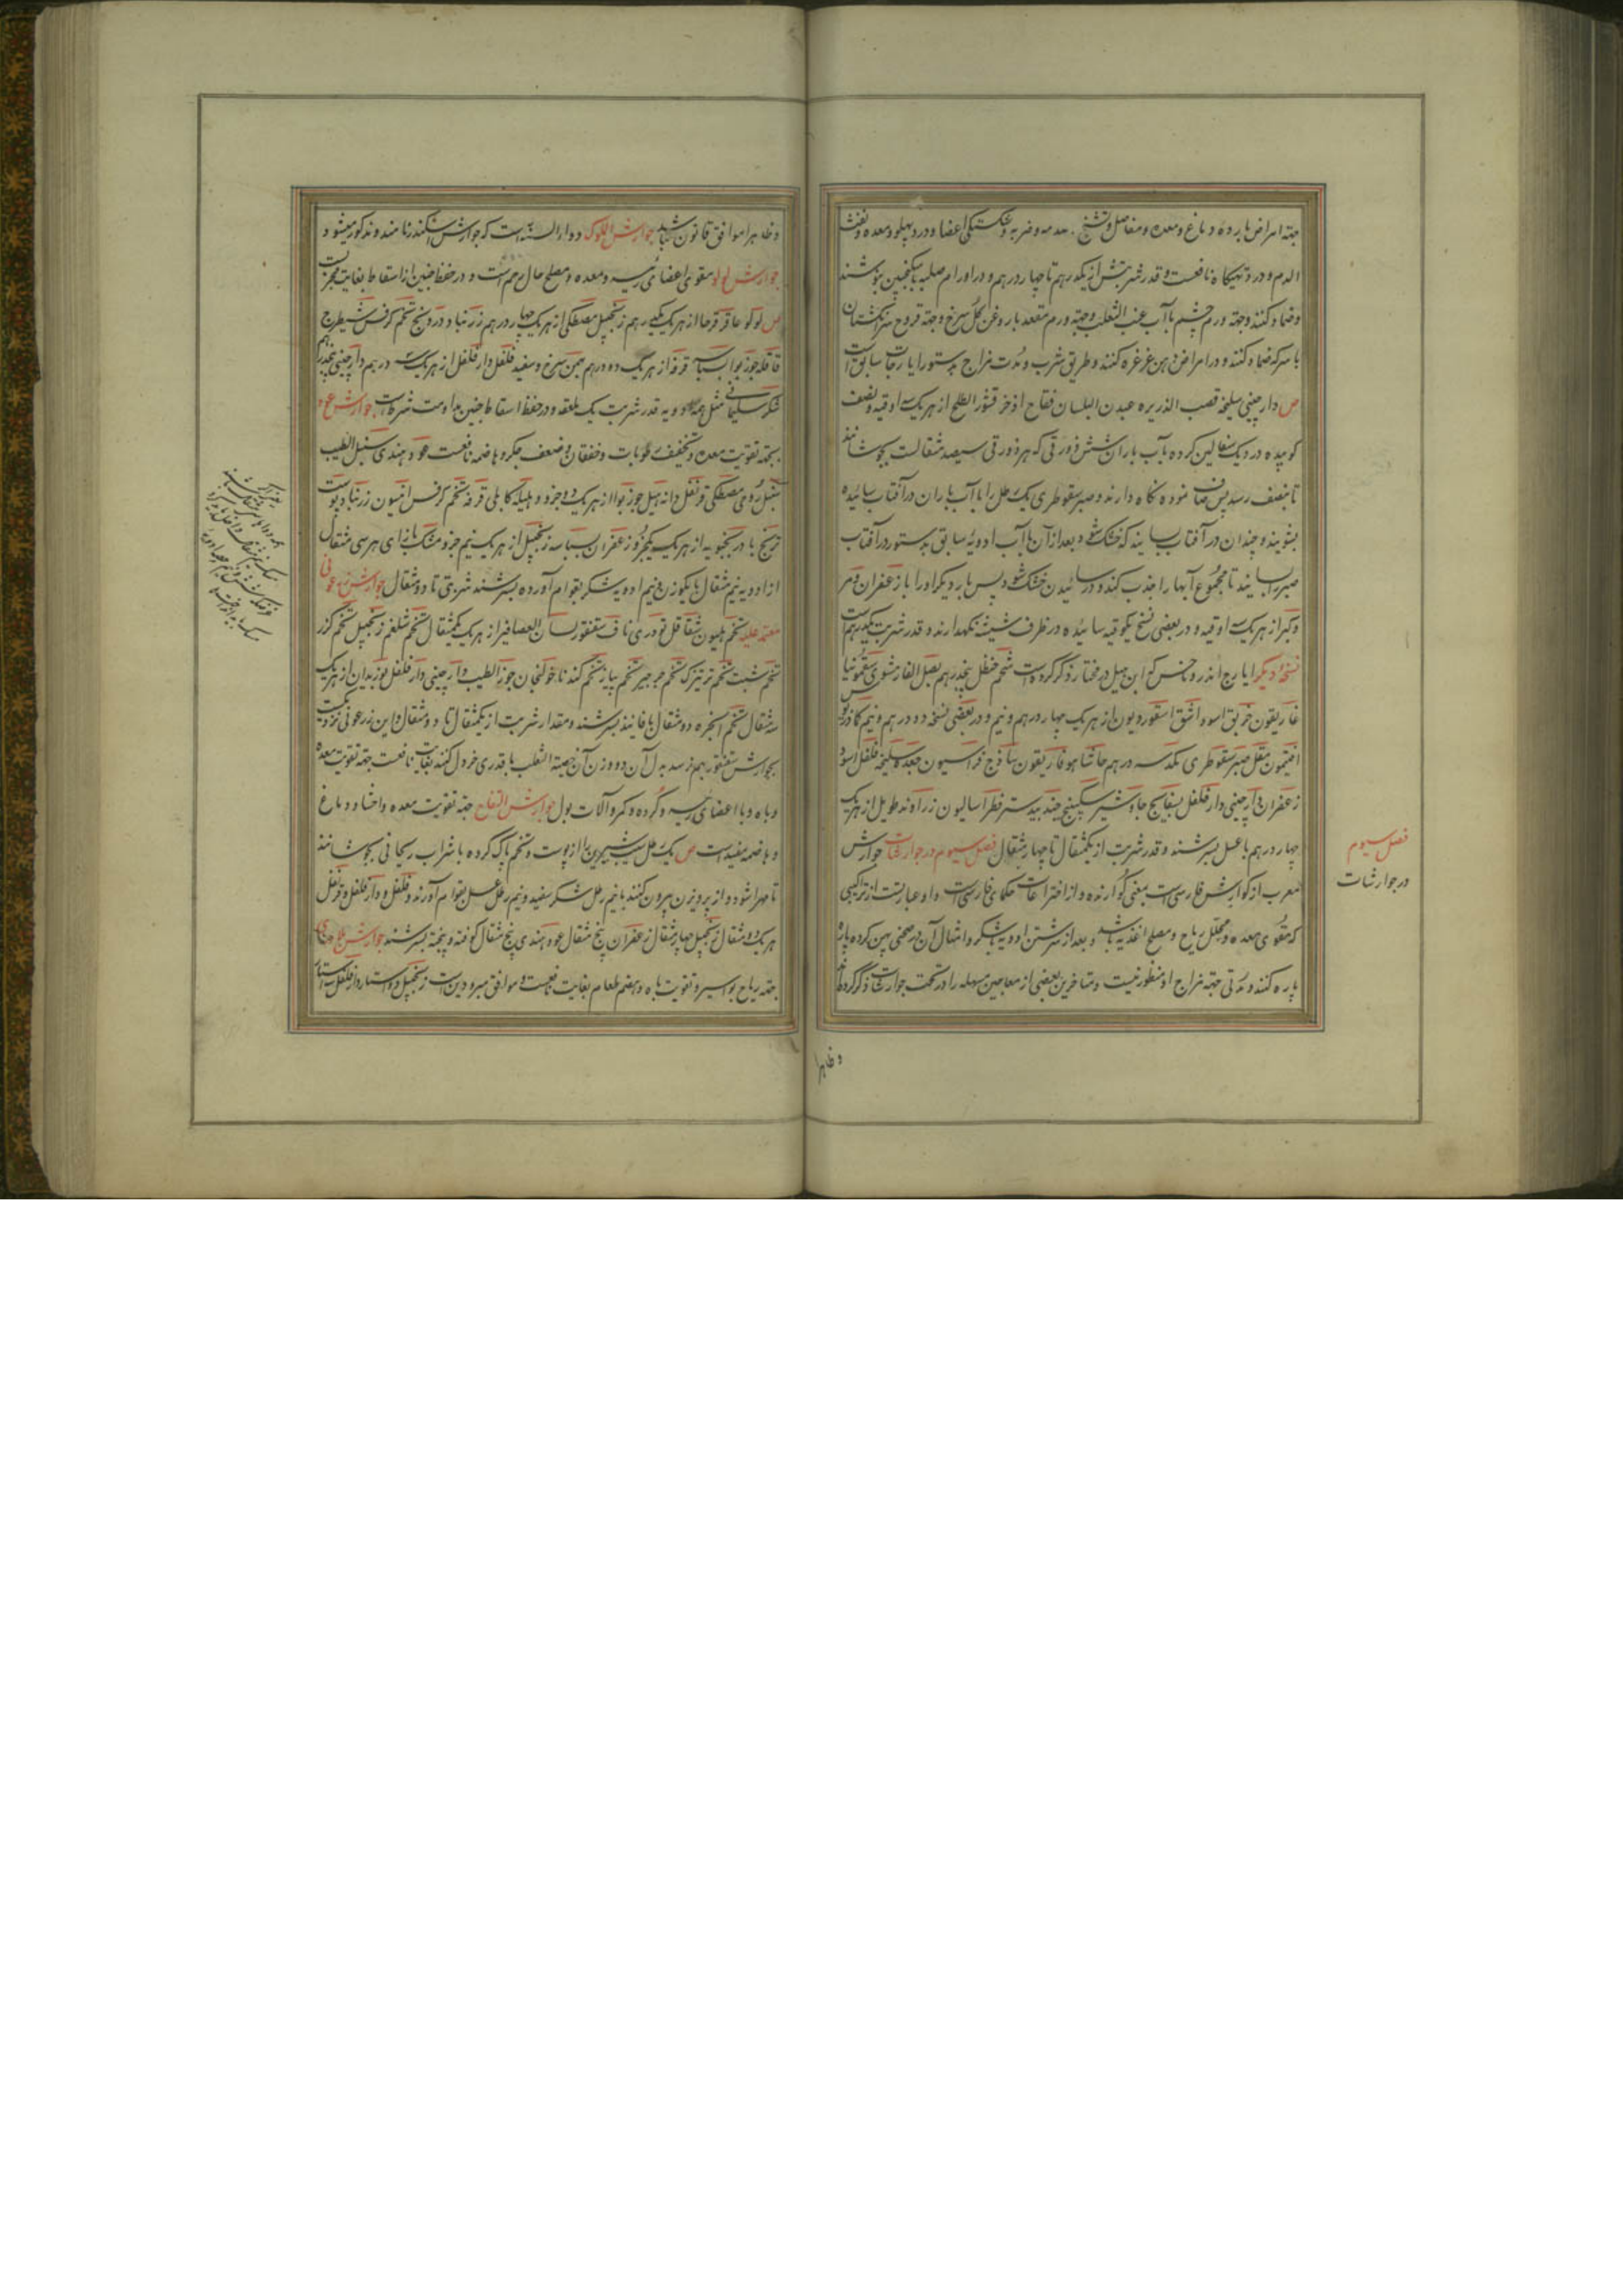 جهة امراض بارده دماغ و معده و مفاصل و تشنج و صدمه و ضربه و شکستکی اعضا و درد پهلو و معده و نفث
الدم و درد تهیکاه نافعست و قدر شربتش از یکدرهم تا چهار درهم و در اورام صلبه با سکنجبین بنوشند
و ضماد کنند و جهة ورم چشم با آب عنب الثعلب و جهة ورم مقعد با روغن کل سرخ و جهة قروح سر انکشتان
با سرکه ضماد کنند و در امراض دهن غرغره کنند و طریق شرب و مدت مزاج بدستور ایارجات سابق است
ص دارچینی سلیخه قصب الذریره عیدان البلسان فقاح اذخر قشور الطلع از هریک سه اوقیه و نصف
کوبیده در دیک سفالین کرده با آب باران شش دورقی که هر دورقی سیصد مثقالست بجوشانند
تا بنصف رسد پس صاف نموده نکاه دارند و صبر سقوطری یک رطل را با آب باران در آفتاب سائیده
بشویند و چندان در آفتاب بسایند که خشک شود و بعد از آن با آب ادویه سابق بدستور در آفتاب
صبر را بسایند تا مجموع آبها را جذب کند و در سائیدن خشک شود پس بار دیکر او را با زعفران و مر
و از هریک اوقیه و در بعضی نسخ یکوقیه سائیده در ظرف شیشه نکهدارند و قدر شربت یکدرهم است
نسخه دیکر ایارج اندروماخس که ابن هبل در مختار ذکر کرده است شحم حنظل پنجدرهم بصل الفار مشوی سقمونیا
غاریقون خربق اسود اشق اسقوردیون از هریک چهار درهم و نیم و در بعضی نسخه دو درهم و نیم کمادریوس
افتیمون مقل صبر سقوطری یکدسه درهم حاشا هوفاریقون ساذج فراسیون جعده سلیخه فلفل اسود
زعفران دارچینی دارفلفل بسفایج جاوشیر سکبینج جندبیدستر فطراسالیون زراوند طویل از هریک
چهار درهم با عسل بسرشند و قدر شربت از یکمثقال تا چهار مثقال فصل سیوم در جوارشات جوارش
معرب از کوارش فارسی است بمعنی کوارنده و از اختراعات حکمای فارس است و او عبارتست از ترکیبی
که مقوی معده و محلل ریاح و مصلح اغذیه باشد و بعد از سرشتن ادویه با شکر و امثال آن در صحنی پهن کرده پاره
پاره کنند و مدتی جهة مزاج او منظور نیست و متاخرین بعضی از معاجین مسهله را در تحت جوارشات ذکر کرده‌اند
و ظاهرا
فصل سیوم
در جوارشات
و ظاهرا موافق قانون نباشد جوارش الملوک دواء السنه است که جوارش اسکندر نامند و مذکور میشود
جوارش لولو مقوی اعضای رئیسه و معده و مصلح حال رحم است و در حفظ جنین از اسقاط بغایت مجربست
ص لولو عاقرقرحا از هریک یکدرهم زنجبیل مصطکی از هریک چهار درهم زرنباد درونج تخم کرفس شیطرج
قاقله جوزبوا بسباسه قرفه از هریک دو درهم بهمن سرخ و سفید فلفل دارفلفل از هریک سه درهم دارچینی پنجدرهم
شکر سلیمانی مثل همه ادویه قدر شربت یک ملعقه و در حفظ اسقاط جنین مداومت شرطست جوارش عود
بجهة تقویت معده و تخفیف رطوبات و خفقان و ضعف جکر و هاضمه نافعست عود هندی سنبل الطیب
سنبل رومی مصطکی قرنفل دانه هیل جوزبوا از هریک دو جزو و هلیله کابلی قرفه تخم کرفس انیسون زرنباد پوست
ترنج بادرنجبویه از هریک یکجزو زعفران بسباسه زنجبیل از هریک نیم جزو مشک بازای هر سی مثقال
از ادویه نیم مثقال با یکوزن و نیم ادویه شکر بقوام آورده بسرشند شربتی تا دو مثقال جوارش زرعونی
معتمد علیه تخم هلیون شقاقل تودری ناف سقنقور لسان العصافیر از هریک یکمثقال تخم شلغم زنجبیل تخم کزر
تخم شبت تخم ترتیزک تخم جرجیر تخم پیاز تخم کندنا خولنجان جوز الطیب دارچینی دارفلفل بوزیدان از هریک
سه مثقال تخم انجره دو مثقال با فانیذ بسرشند و مقدار شربت از یکمثقال تا دو مثقال و این زرعونی نزدیک
بجوارش سقنقور بهم رسد بدل آن دو وزن آن خصیة الثعلب با قدری خردل کنند بغایت نافعست جهة تقویت معده
و باه و با اعضای رئیسه و کرده و کمر و آلات بول جوارش التفاح جهة تقویت معده و احشا و دماغ
و هاضمه مفید است ص یک رطل سیب شیرین را از پوست و تخم پاک کرده با شراب ریحانی بجوشانند
تا مهرا شود و از پرویزن بیرون کنند با نیم رطل شکر سفید و نیم رطل عسل بقوام آورند و فلفل و دارفلفل و قرنفل
هریک دو مثقال زنجبیل چهار مثقال زعفران پنج مثقال عود هندی پنج مثقال کوفته و بیخته بسرشند جوارش
جهة ریاح بواسیر و تقویت باه و هضم طعام بغایت نافعست و موافق مبرودین است زنجبیل دو استار دارفلفل سه استار